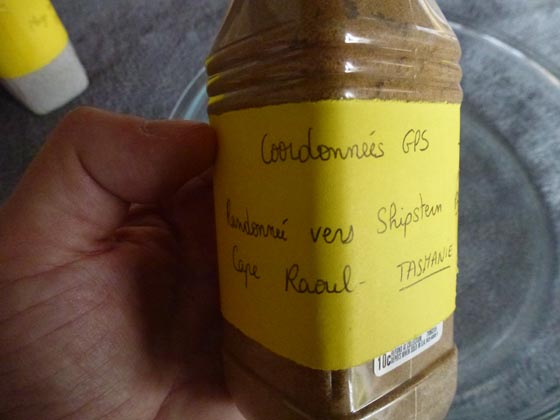 Coordonnées GPS
Randonnée vers Shipstern
Cape Raoul - TASMANIE
10c